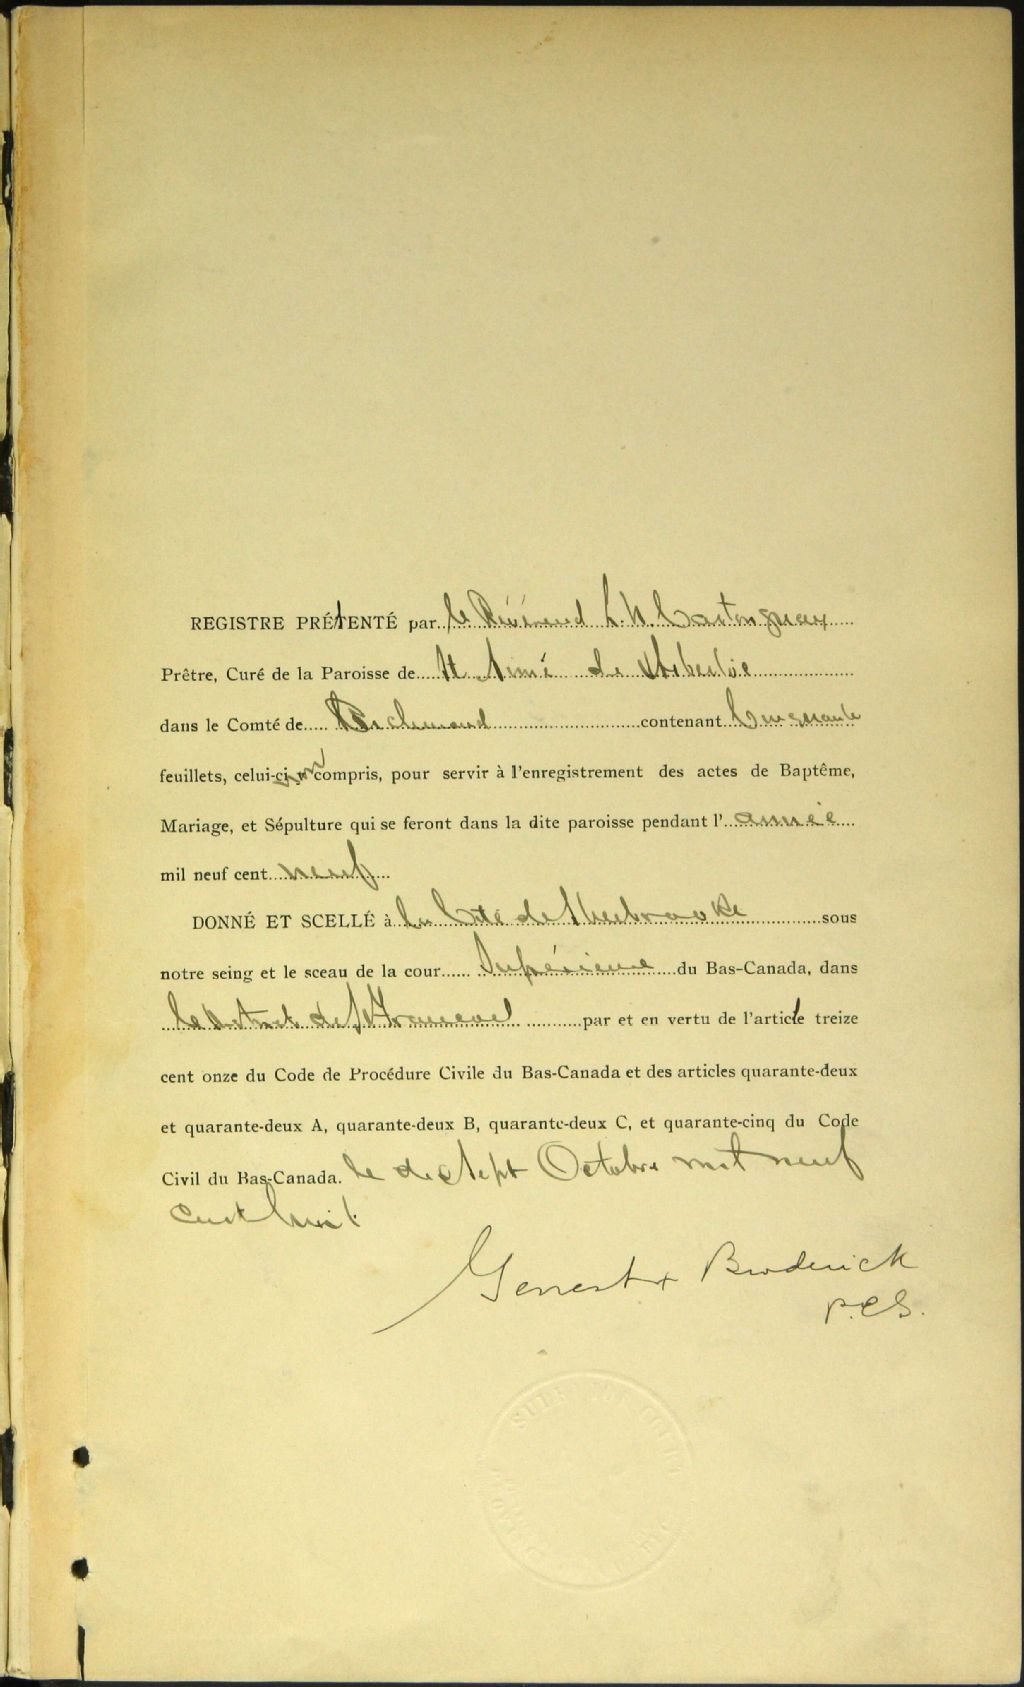 REGISTRE PRÉTENTÉ par le Révérend L. N. Castonguay
Prêtre, Curé de la Paroisse de St Aimé de
dans le Comté de Richmond contenant Cinquante
feuillets, celui-ci non compris, pour servir à l'enregistrement des actes de Baptême,
Mariage, et Sépulture qui se feront dans la dite paroisse pendant l'année
mil neuf cent neuf
DONNÉ ET SCELLÉ à la Cité de Sherbrooke sous
notre seing et le sceau de la cour Supérieure du Bas-Canada, dans
le District de St Francois par et en vertu de l'article treize
cent onze du Code de Procédure Civile du Bas-Canada et des articles quarante-deux
et quarante-deux A, quarante-deux B, quarante-deux C, et quarante-cinq du Code
Civil du Bas-Canada. le dix sept Octobre mil neuf
cent huit
Genest & Broderick
P.C.S.
SUPERIOR COURT